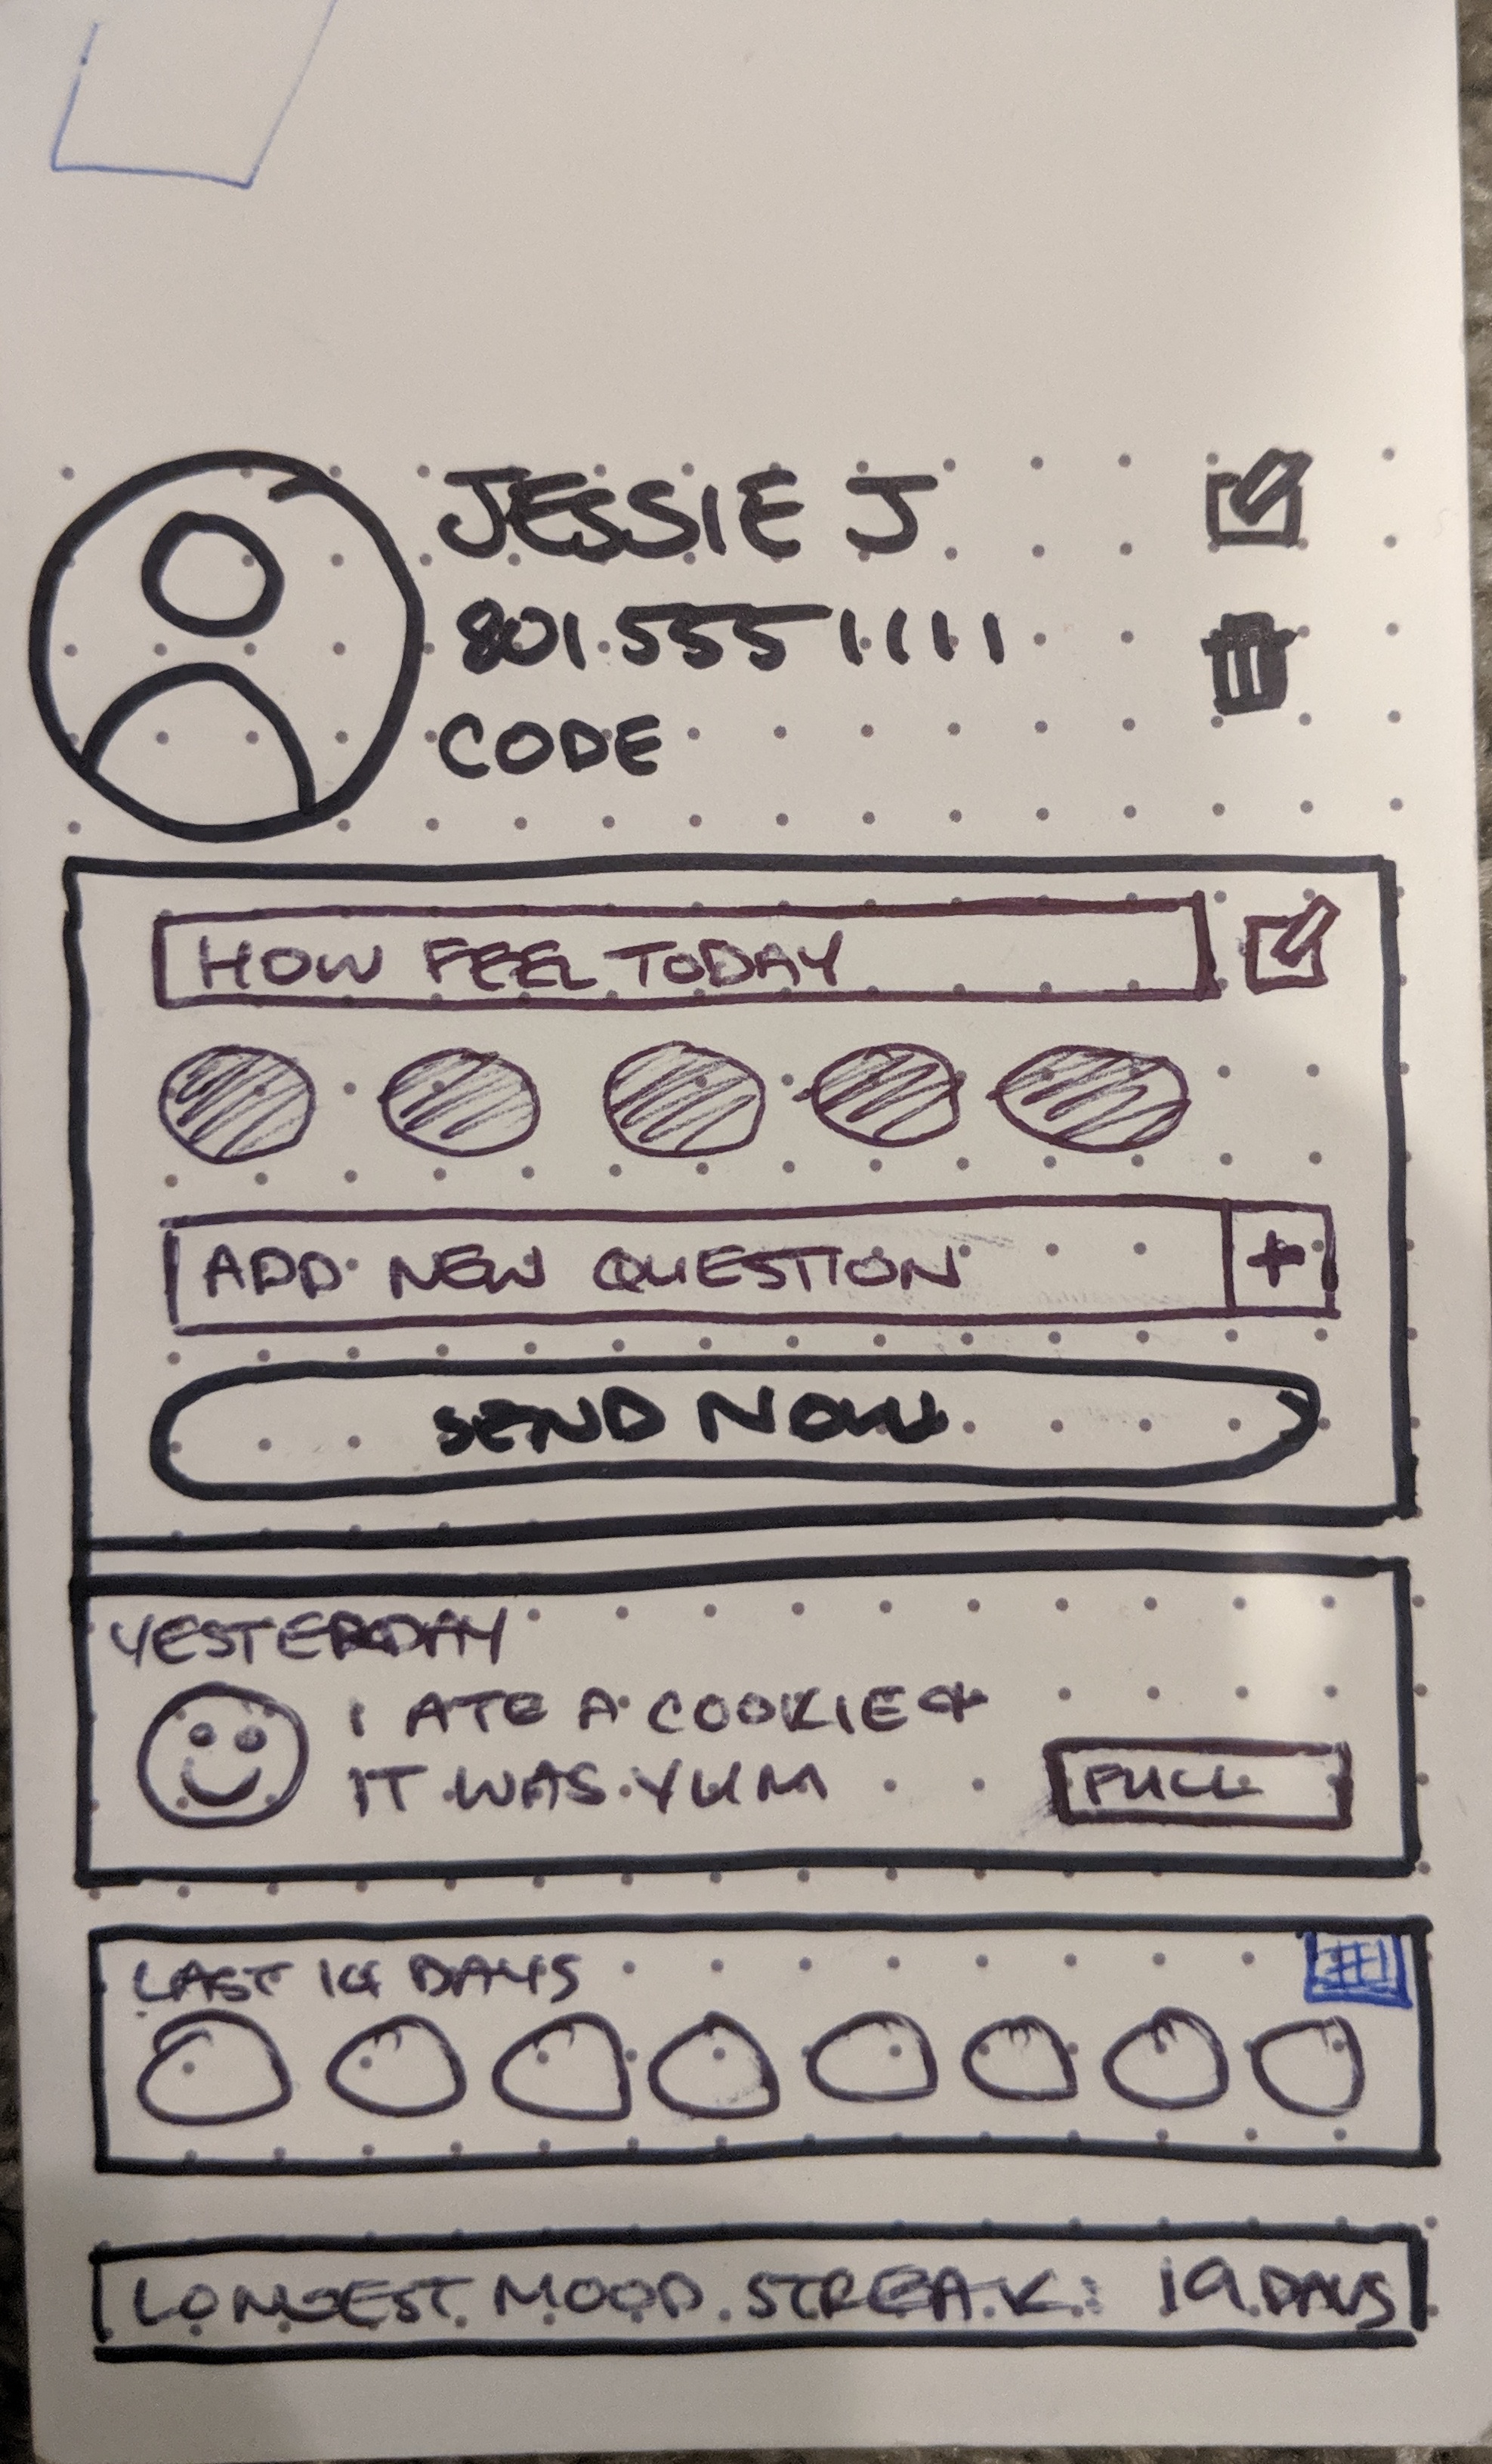 JESSIE J
801.555 1111
CODE
HOW FEEL TODAY
ADD NEW QUESTION +
SEND NOW
YESTERDAY
I ATE A COOKIE &
IT WAS YUM
FULL
LAST 14 DAYS
LONGEST MOOD STREAK: 19 DAYS